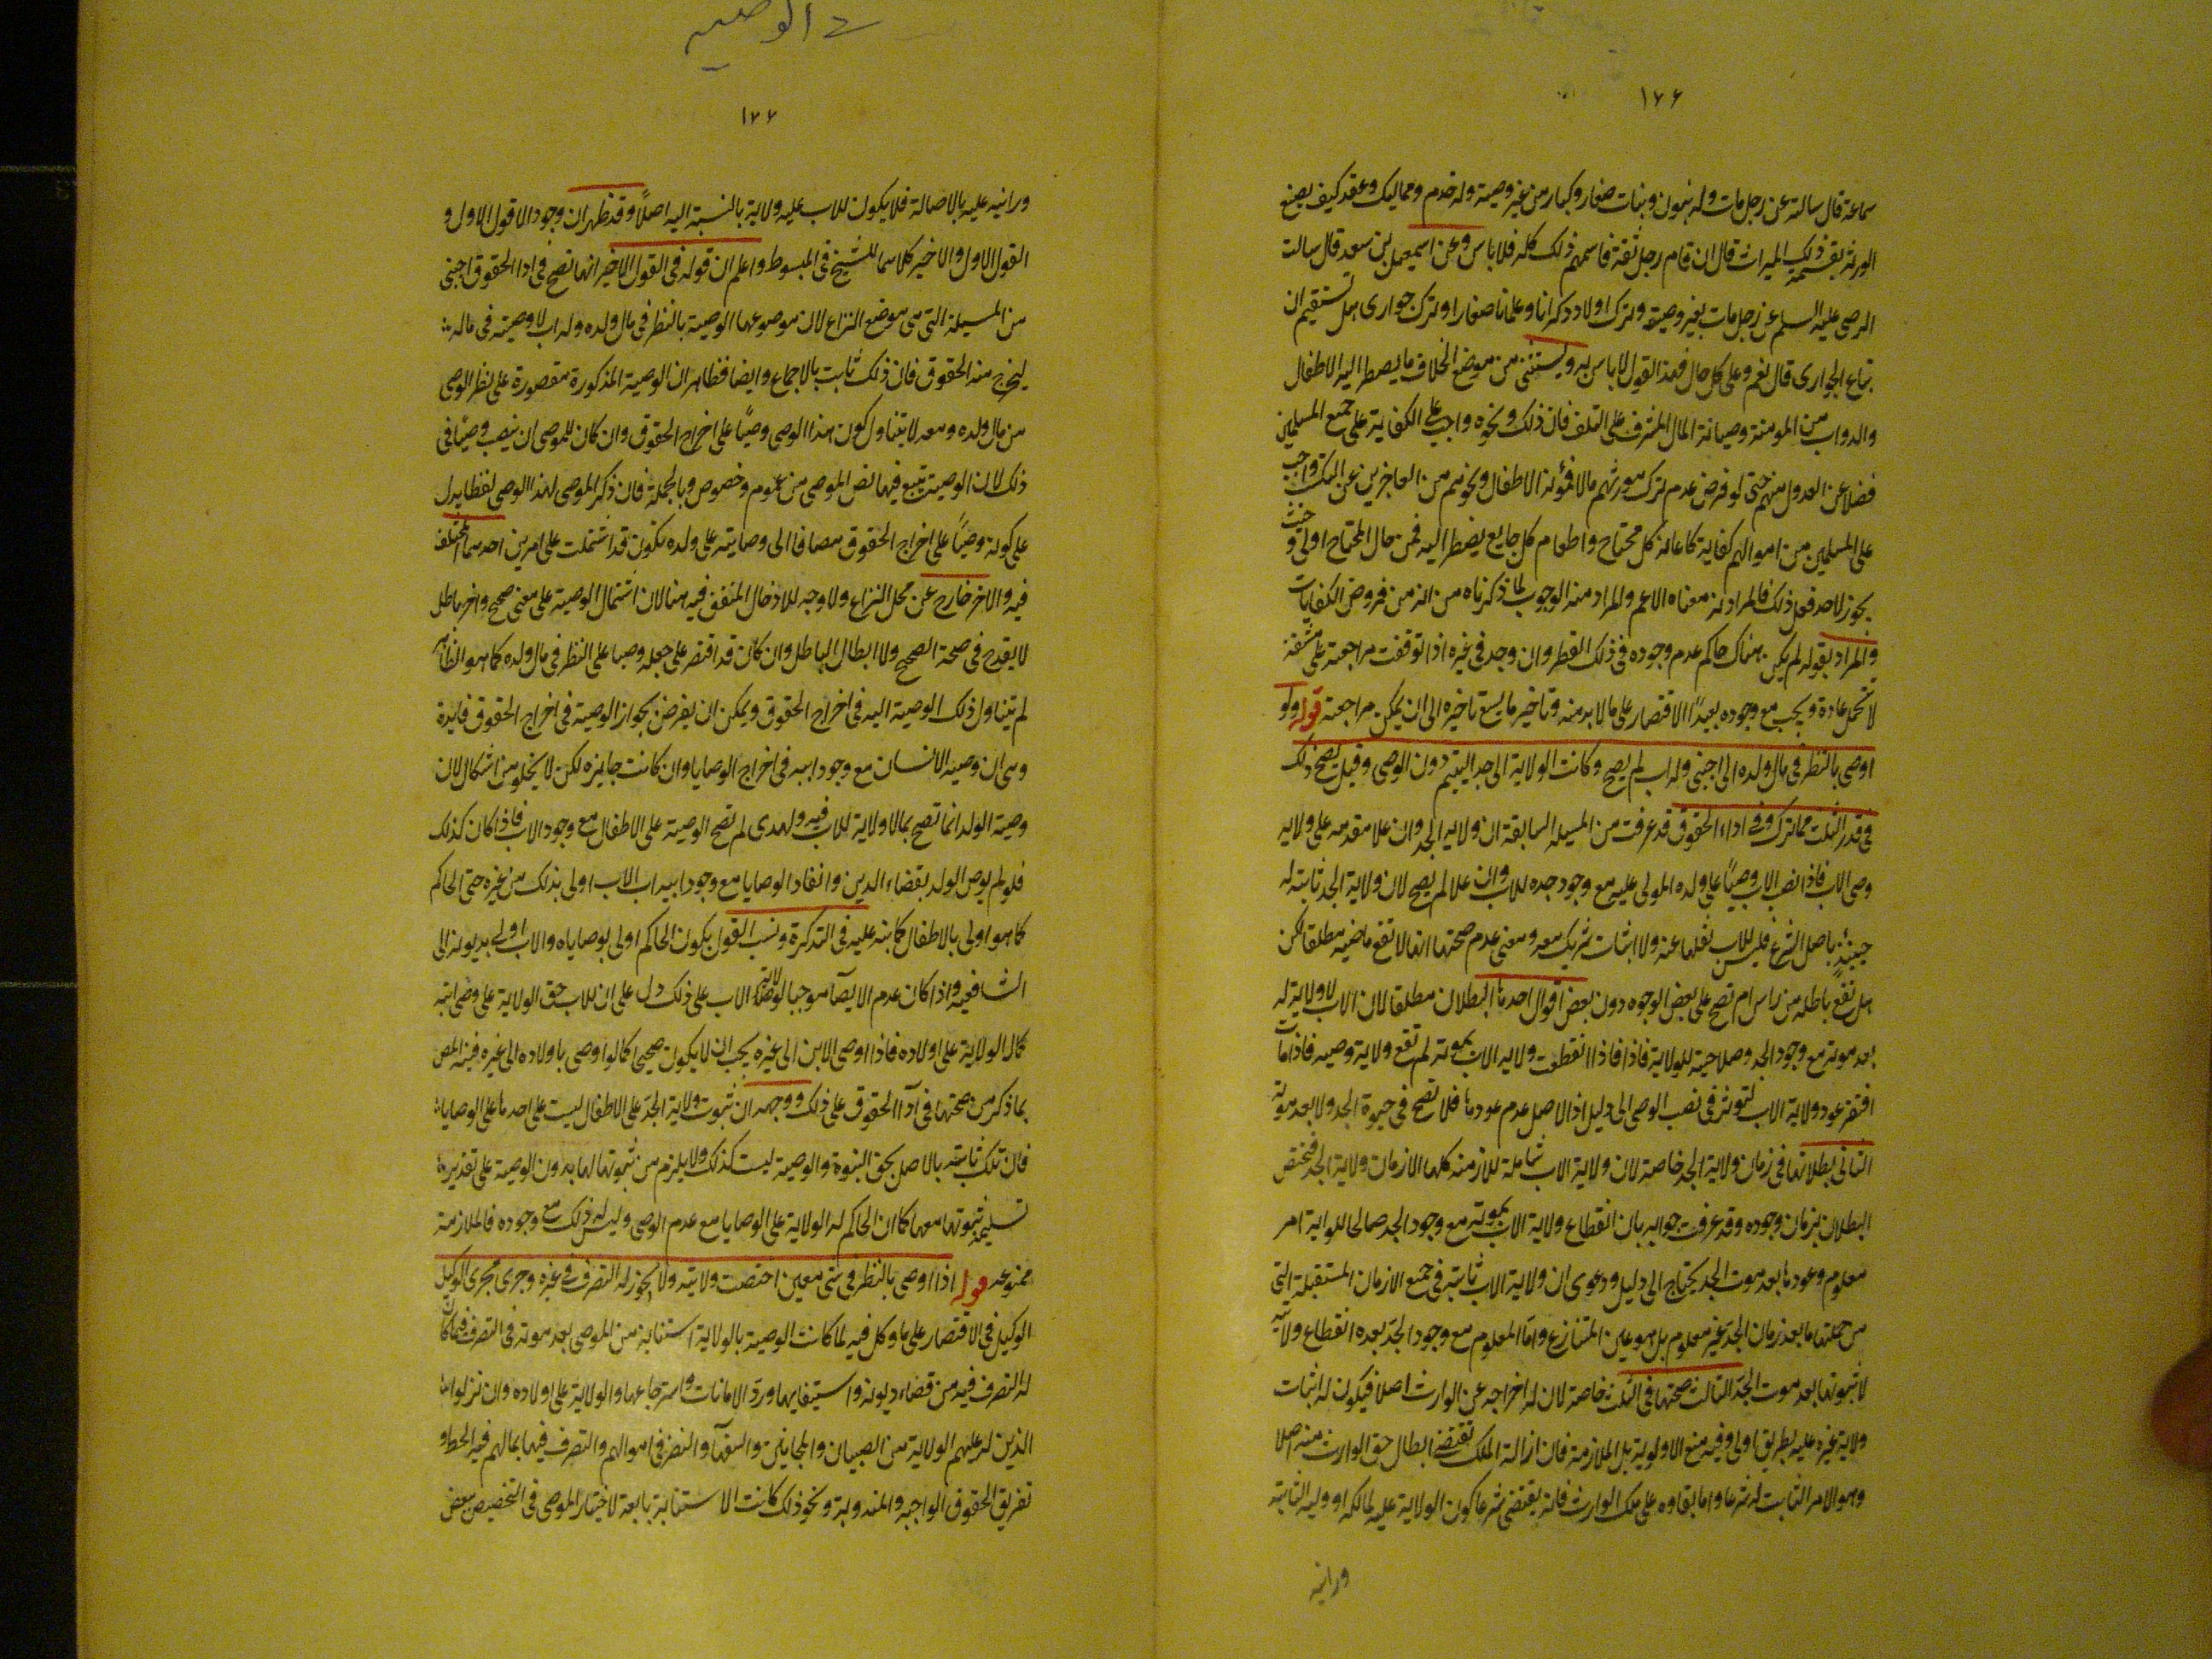 ١٧٦
سماعة قال سالته عن رجل مات وله بنون وبنات صغار وكبار من غير وصية وله خدم ومماليك وعقد كيف يصنع
الورثة بقسمة ذلك الميراث قال ان قام رجل ثقة قاسمهم ذلك كله فلا باس وعن اسمعيل بن سعد قال سالت
الرضى عليه السلم عن رجل مات بغير وصية وترك اولاد ذكرانا وغلمانا صغارا وترك جوارى هل تستقيم ان
تباع الجوارى قال نعم وعلى كل حال فهذا القول لا باس به ويستثنى من موضع الخلاف ما يضطر اليه الاطفال
والدواب من المؤنة وصيانة المال المشرف على التلف فان ذلك ونحوه واجب على الكفاية على جميع المسلمين
فضلا عن العدول منهم حتى لو فرض عدم ترك مورثهم مالا فمؤنة الاطفال ونحوهم من العاجزين عن التكسب واجب
على المسلمين من اموالهم كفاية كاعانة كل محتاج واطعام كل جايع يضطر اليه فمن مال المحتاج اولى وحيث
يجوز لاحد فعل ذلك فالمراد به معناه الاعم والمراد منه الوجوب لما ذكرناه من انه من فروض الكفايات
والمراد بقوله لم يكن هناك حاكم عدم وجوده فى ذلك القطر وان وجد فى غيره اذا توقفت مراجعته على مشقة
لا تحمل عادة ويجب مع وجوده بعيدًا الاقتصار على ما لابد منه وتاخير ما يسع تاخيره الى ان يمكن مراجعته قوله ولو
اوصى بالنظر فى مال ولده الى اجنبى وله اب لم يصح وكانت الولاية الى جد اليتيم دون الوصى وقيل يصح ذلك
فى قدر الثلث مما ترك وفى اداء الحقوق قد عرفت من المسيلة السابقة ان ولاية الجد وان علا مقدمه على ولاية
وصى الاب فاذا نصب الاب وصيًا على ولده المولى عليه مع وجود جده للاب وان علا لم يصح لان ولاية الجد ثابتة له
حينئذٍ باصل الشرع فليس للاب نقلها عنه ولا اثبات شريك معه ومعنى عدم صحتها انها لا تقع ماضيه مطلقا لكن
هل تقع باطله من راس ام تصح على بعض الوجوه دون بعض اقوال احدها البطلان مطلقا لان الاب لا ولاية له
بعد موته مع وجود الجد وصلاحيته للولاية فاذا انقطعت ولاية الاب بموته لم تقع ولاية وصيه فاذا مات
افتقر عود ولاية الاب لتوثر فى نصب الوصى الى دليل اذ الاصل عدم عودها فلا تصح فى حيوة الجد ولا بعد موته
الثانى بطلانها فى زمان ولاية الجد خاصة لان ولاية الاب شاملة للازمنه كلها الا زمان ولاية الجد فتختص
البطلان بزمان وجوده وقد عرفت جوابه بان انقطاع ولاية الاب بموته مع وجود الجد صالحا للولاية امر
معلوم وعودها بعد موت الجد يحتاج الى دليل ودعوى ان ولاية الاب ثابتة فى جميع الازمان المستقبلة التى
من جملتها ما بعد زمان الجد غير معلوم بل هو عين المتنازع وامّا المعلوم مع وجود الجد بعده انقطاع ولايته
لا ثبوتها بعد موت الجد الثالث صحتها فى الثلث خاصة لان له اخراجه عن الوارث اصلا فيكون له اثبات
ولاية غيره عليه بطريق اولى وفيه منع الاولوية بل الملازمة فان ازالة الملك تقتضى ابطال حق الوارث منه اصلا
وهو الامر الثابت له شرعا واما بقاوه على ملك الوارث فانه يقتضى شرعا كون الولاية عليه لمالكه او وليه الثابته
ورانيه
فى الوصيه
١٧٧
ورانيه عليه بالاصالة فلا يكون للاب عليه ولاية بالنسبة اليه اصلًا وقد ظهر ان وجود الاقول الاول و
القول الاول والاخير كلاهما للشيخ فى المبسوط واعلم ان قوله فى القول الاخير انها تصح فى ادا الحقوق اجنبى
من المسيلة التى هى موضع النزاع لان موضوعها الوصية بالنظر فى مال ولده وله اب لا وصيته فى ماله
ليخرج منه الحقوق فان ذلك ثابت بالاجماع وايضا فظاهر ان الوصية المذكورة مقصورة على نظر الوصى
من مال ولده ومعه لا يتناول كون هذا الوصى وصيًا على اخراج الحقوق وان كان للموصى ان ينصب وصيًا فى
ذلك لان الوصية يتبع فيها نص الموصى من عموم وخصوص وبالجملة فان ذكر الموصى لهذا الوصى لفظا يدل
على كونه وصيًا على اخراج الحقوق مضافا الى وصايته على ولده تكون قد اشتملت على امرين احدهما المختلف
فيه والاخر خارج عن محل النزاع ولا وجه للادخال المتفق فيه هنا لان اشتمال الوصية على معنى صحيح واخر باطل
لا يقدح فى صحة الصحيح ولا ابطال الباطل وان كان قد اقتصر على جعله وصيا على النظر فى مال ولده كما هو الظاهر
لم تتناول ذلك الوصية اليه فى اخراج الحقوق ويمكن ان يفرض بجواز الوصية فى اخراج الحقوق فايدة
وهى ان وصية الانسان مع وجود ابيه فى اخراج الوصايا وان كانت جايزه لكن لا يخلو من اشكال لان
وصية الولد انما تصح بما لا ولاية للاب فيه ولهذى لم تصح الوصية على الاطفال مع وجود الاب فاذا كان كذلك
فلو لم يوص الولد بقضاء الدين وانفاد الوصايا مع وجود ابيه اب الاب اولى بذلك من غيره حتى الحاكم
كما هو اولى بالاطفال كما نبه عليه فى التذكرة ونسب القول بكون الحاكم اولى بوصاياه والاب اولى بديونه الى
الشافعيه واذا كان عدم الايصآ موجبا لولاية الاب على ذلك دل على ان للاب حق الولاية على وصى ابنه
كما له الولاية على اولاده فاذا اوصى الابن الى غيره يجب ان لا يكون صحيحا كما لو اوصى باولاده الى غيره فينبه المصن
بما ذكر من صحتها فى ادآ الحقوق على ذلك ووجهه ان ثبوت ولاية الجدّ على الاطفال ليست على احدها على الوصايا
فان تلك ثابته بالاصل بحق البنوة والوصية ليست كذلك ولا يلزم من ثبوتها لها بدون الوصية على تقدير
تسليمه ثبوتها معها كما ان الحاكم له الولاية على الوصايا مع عدم الوصى وليس له ذلك مع وجوده فالملازمة
ممنوعه قوله اذا اوصى بالنظر فى شى معين اختصت ولايته ولا يجوز له التصرف فى غيره وجرى مجرى الوكيل
الوكيل فى الاقتصار على ما وكل فيه لما كانت الوصية بالولاية استنابة من الموصى بعد موته فى التصرف فيما كان
له التصرف فيه من قضاء ديونه واستيفايها ورد الامانات واسترجاعها والولاية على اولاده وان نزلوا
الذين له عليهم الولاية من الصبيان والمجانين والسفهآ والنضر فى اموالهم والتصرف فيها بما لهم فيه الحظ و
تفريق الحقوق الواجبه والمندوبة ونحو ذلك كانت الاستنابة تابعة لاختيار الموصى فى التخصيص ببعض